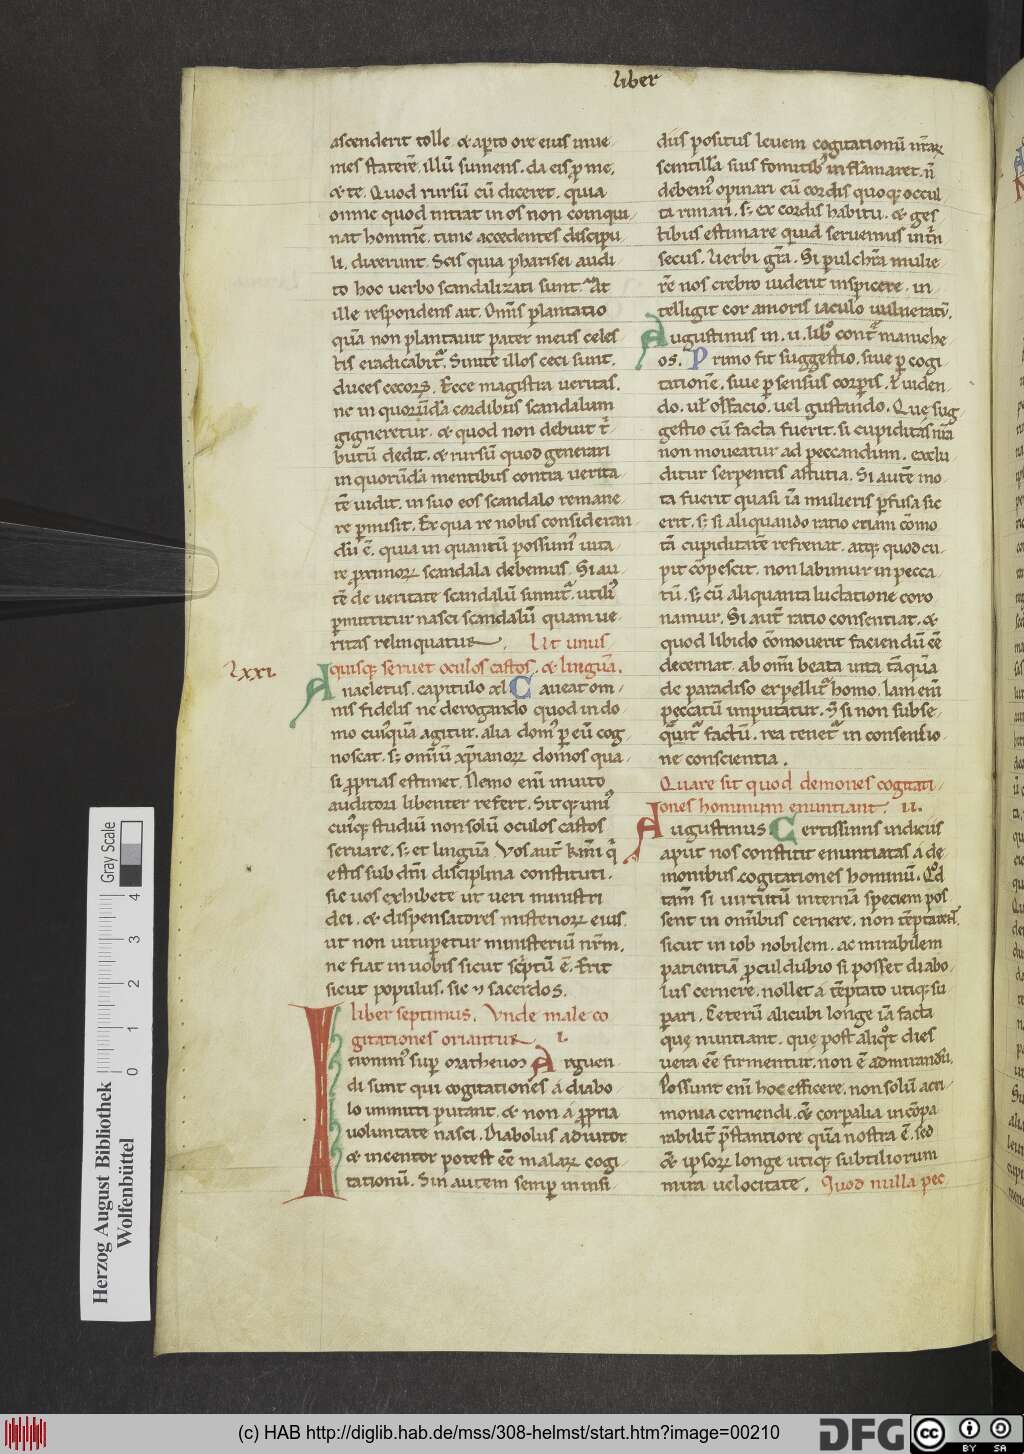 liber
ascenderit tolle. & apto ore eius inue
nies staterē. illū sumens. da eis p me,
& te. Quod rursū cū diceret. quia
omne quod intrat in os non coinqui
nat hominē. tunc accedentes discipu
li, dixerunt. Scis quia pharisei audi
to hoc uerbo scandalizati sunt. At
ille respondens ait. Omīs plantatio
quā non plantauit pater meus celes
tis eradicabit̄. Sinite illos ceci sunt.
duces cecoꝝ. Ecce magistra ueritas.
ne in quorūdā cordibus scandalum
gigneretur. & quod non debuit t̄
butū dedit. & rursū quod generari
in quorūdā mentibus contra uerita
tē uidit. in suo eos scandalo remane
re pmisit. Ex qua re nobis consideran
dū ē. quia in quantū possum' uita
re proximoꝝ scandala debemus. Si au
tē de ueritate scandalū sumit̄. utili'
pmittitur nasci scandalū quam ue
ritas relinquatur. Ut unus
lxxi. quisq; seruet oculos castos. & linguā.
Anacletus. capitulo xl Caueat om
nis fidelis ne derogando quod in do
mo cuiusquā agitur. alia dom' p eū cog
noscat. s; omīū xp̄ianoꝝ domos qua
si pprias estimet. Nemo enī inuito
auditori libenter refert. Sit q; uni'
cui'q; studiū non solū oculos castos
seruare. s; et linguā Vos aut̄ km̄i q̄
estis sub dn̄i disciplina constituti.
sic uos exhibete ut ueri ministri
dei. & dispensatores misterioꝝ eius.
ut non uituperetur ministeriū nr̄m.
ne fiat in uobis sicut sc̄ptū ē. Erit
sicut populus. sic & sacerdos.
Iliber septimus. Vnde male co
gitationes oriantur. i.
Ieronim' sup matheum Arguen
di sunt qui cogitationes a diabo
lo immitti putant. & non a ppria
uoluntate nasci. Diabolus adiutor
& incentor potest eē malaꝝ cogi
tationū. Sin autem semp in insi
diis positus leuem cogitationū nr̄aꝝ
scintillā suis fomitib; inflāmaret. n̄
debem' opinari eū cordis quoq; occul
ta rimari. s; ex cordis habitu. & ges
tibus estimare quid seruemus intrin
secus. Uerbi gr̄a. Si pulchrā mulie
rē nos crebro uiderit inspicere. in
telligit cor amoris iaculo uulneratū.
Augustinus in. ii. lib̄o cont̄ maniche
os. Primo fit suggestio. siue p cogi
tationē. siue p sensus corpis. t̄ uiden
do. ul̄ olfaciō. uel gustando. Que sug
gestio cū facta fuerit. si cupiditas nr̄a
non moueatur ad peccandum. exclu
ditur serpentis astutia. Si autē mo
ta fuerit quasi iā mulieris psuasa sic
erit. s; si aliquando ratio etiam cōmo
tā cupiditatē refrenat. atq; quod cu
pit cōpescit. non labimur in pecca
tū. s; cū aliquanta luctatione coro
namur. Si aut̄ ratio consentiat. &
quod libido cōmouerit faciendū eē
decernat. ab omī beata uita tāquā
de paradiso expellit̄ homo. Iam enī
peccatū imputatur. & si non subse
quit̄ factū. rea tenet̄ in consensio
ne conscientia.
Quare sit quod demones cogitati
ones hominum enuntiant. ii.
Augustinus Certissimis indiciis
aput nos constitit enuntiatas a de
monibus cogitationes hominū. Qd
tam̄ si uirtutū internā speciem pos
sent in omībus cernere. non tēptarent.
sicut in iob nobilem. ac mirabilem
patientiā procul dubio si posset diabo
lus cernere. nollet a tēptato utiq; su
pari. Ceterū alicubi longe iā facta
que nuntiant. que post aliquot dies
uera eē firmentur. non ē admirandū.
Possunt enī hoc efficere. non solū acri
monia cernendi. & corpalia incōpa
rabilit̄ p̄stantiore quā nostra ē. sed
& ipsoꝝ longe utiq; subtiliorum
mira uelocitate. Quod nulla pec
Herzog August Bibliothek
Wolfenbüttel
0 1 2 3 4
Gray Scale
(c) HAB http://diglib.hab.de/mss/308-helmst/start.htm?image=00210
DFG
cc BY SA